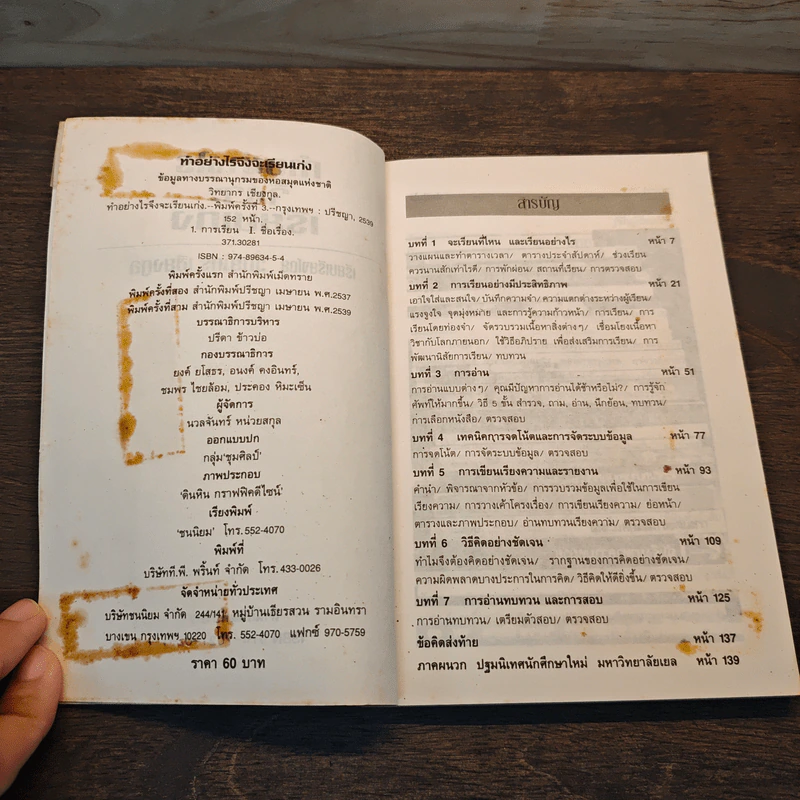 ทำอย่างไรจึงจะเรียนเก่ง
ข้อมูลทางบรรณานุกรมของหอสมุดแห่งชาติ
วิทยากร เชียงกูล.
ทำอย่างไรจึงจะเรียนเก่ง.--พิมพ์ครั้งที่ 3.--กรุงเทพฯ : ปรีชญา, 2539
152 หน้า.
1. การเรียน I. ชื่อเรื่อง.
371.30281
ISBN : 974-89634-5-4
พิมพ์ครั้งแรก สำนักพิมพ์เม็ดทราย
พิมพ์ครั้งที่สอง สำนักพิมพ์ปรีชญา เมษายน พ.ศ.2537
พิมพ์ครั้งที่สาม สำนักพิมพ์ปรีชญา เมษายน พ.ศ.2539
บรรณาธิการบริหาร
ปรีดา ข้าวบ่อ
กองบรรณาธิการ
ยงค์ ยโสธร, อนงค์ คงอินทร์,
ชมพร ไชยล้อม, ประคอง หิมะเซ็น
ผู้จัดการ
นวลจันทร์ หน่วยสกุล
ออกแบบปก
กลุ่ม'ชุมศิลป์'
ภาพประกอบ
'ดินหิน กราฟฟิคดีไซน์'
เรียงพิมพ์
'ชนนิยม' โทร.552-4070
พิมพ์ที่
บริษัทที.พี. พริ้นท์ จำกัด โทร.433-0026
จัดจำหน่ายทั่วประเทศ
บริษัทชนนิยม จำกัด 244/141 หมู่บ้านเธียรสวน รามอินทรา
บางเขน กรุงเทพฯ 10220 โทร. 552-4070 แฟกซ์ 970-5759
ราคา 60 บาท
สารบัญ
บทที่ 1 จะเรียนที่ไหน และเรียนอย่างไร หน้า 7
วางแผนและทำตารางเวลา/ ตารางประจำสัปดาห์/ ช่วงเรียน
ควรนานสักเท่าไรดี/ การพักผ่อน/ สถานที่เรียน/ การตรวจสอบ
บทที่ 2 การเรียนอย่างมีประสิทธิภาพ หน้า 21
เอาใจใส่และสนใจ/ บันทึกความจำ/ ความแตกต่างระหว่างผู้เรียน/
แรงจูงใจ จุดมุ่งหมาย และการรู้ความก้าวหน้า/ การเรียน/ การ
เรียนโดยท่องจำ/ จัดรวบรวมเนื้อหาสิ่งต่างๆ/ เชื่อมโยงเนื้อหา
วิชากับโลกภายนอก/ ใช้วิธีอภิปราย เพื่อส่งเสริมการเรียน/ การ
พัฒนานิสัยการเรียน/ ทบทวน
บทที่ 3 การอ่าน หน้า 51
การอ่านแบบต่างๆ/ คุณมีปัญหาการอ่านได้ช้าหรือไม่?/ การรู้จัก
ศัพท์ให้มากขึ้น/ วิธี 5 ขั้น สำรวจ, ถาม, อ่าน, นึกย้อน, ทบทวน/
การเลือกหนังสือ/ ตรวจสอบ
บทที่ 4 เทคนิคการจดโน้ตและการจัดระบบข้อมูล หน้า 77
การจดโน้ต/ การจัดระบบข้อมูล/ ตรวจสอบ
บทที่ 5 การเขียนเรียงความและรายงาน หน้า 93
คำนำ/ พิจารณาจากหัวข้อ/ การรวบรวมข้อมูลเพื่อใช้ในการเขียน
เรียงความ/ การวางเค้าโครงเรื่อง/ การเขียนเรียงความ/ ย่อหน้า/
ตารางและภาพประกอบ/ อ่านทบทวนเรียงความ/ ตรวจสอบ
บทที่ 6 วิธีคิดอย่างชัดเจน หน้า 109
ทำไมจึงต้องคิดอย่างชัดเจน/ รากฐานของการคิดอย่างชัดเจน/
ความผิดพลาดบางประการในการคิด/ วิธีคิดให้ดียิ่งขึ้น/ ตรวจสอบ
บทที่ 7 การอ่านทบทวน และการสอบ หน้า 125
การอ่านทบทวน/ เตรียมตัวสอบ/ ตรวจสอบ
ข้อคิดส่งท้าย หน้า 137
ภาคผนวก ปฐมนิเทศนักศึกษาใหม่ มหาวิทยาลัยเยล หน้า 139